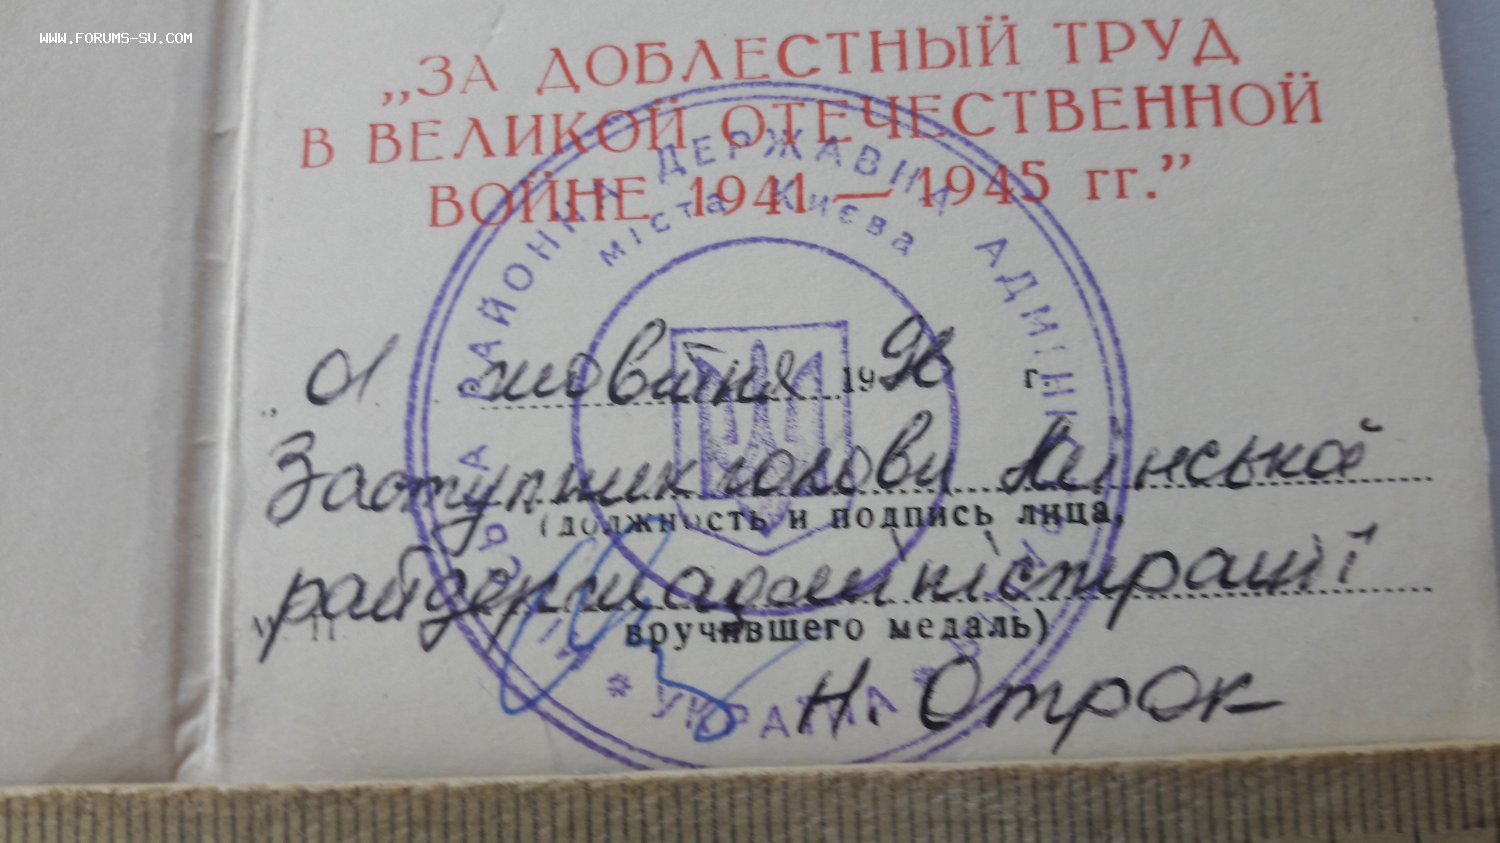 WWW.FORUMS-SU.COM
„ЗА ДОБЛЕСТНЫЙ ТРУД
В ВЕЛИКОЙ ОТЕЧЕСТВЕННОЙ
ВОЙНЕ 1941 — 1945 гг.”
РАЙОННА ДЕРЖАВНА АДМІНІСТРАЦІЯ
міста Києва
* УКРАЇНА *
„ 01 " жовтня 1996 г.
Заступник голови Мінської
(должность и подпись лица,
райдержадміністрації
вручившего медаль)
Н. Отрок